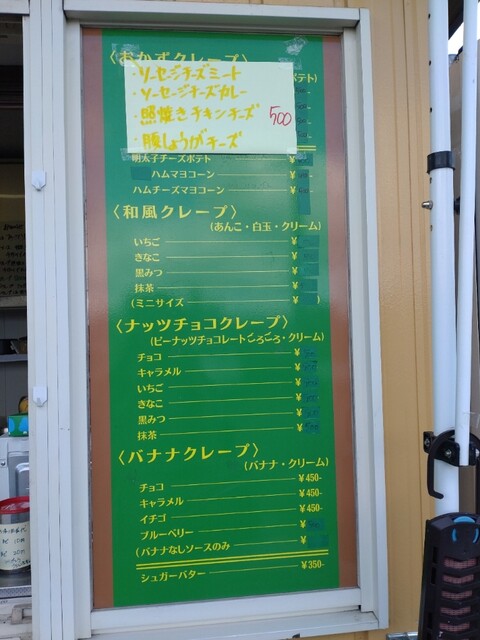 〈おかずクレープ〉
ポテト)
・ソーセージチーズミート
・ソーセージチーズカレー
・照焼きチキンチーズ 500
・豚しょうがチーズ
明太子チーズポテト ¥
ハムマヨコーン ¥
ハムチーズマヨコーン ¥
〈和風クレープ〉
(あんこ・白玉・クリーム)
いちご ¥
きなこ ¥
黒みつ ¥
抹茶 ¥
(ミニサイズ ¥ )
〈ナッツチョコクレープ〉
(ピーナッツチョコレートごろごろ・クリーム)
チョコ ¥
キャラメル ¥
いちご ¥
きなこ ¥
黒みつ ¥
抹茶 ¥
〈バナナクレープ〉
(バナナ・クリーム)
チョコ ¥450-
キャラメル ¥450-
イチゴ ¥450-
ブルーベリー ¥
(バナナなしソースのみ ¥
シュガーバター ¥350-